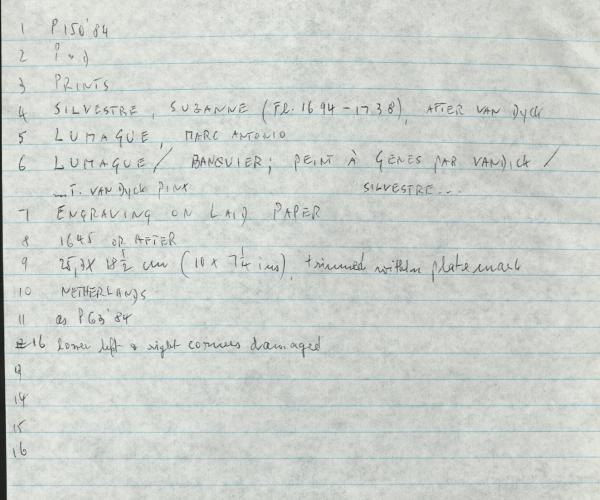 1 P150'84
2 P & D
3 PRINTS
4 SILVESTRE, SUZANNE (FL. 1694-1738), AFTER VAN DYCK
5 LUMAGUE, MARC ANTONIO
6 LUMAGUE / BANQUIER; PEINT À GÊNES PAR VANDICK /
...T. VAN DYCK PINX SILVESTRE...
7 ENGRAVING ON LAID PAPER
8 1645 OR AFTER
9 25,3 X 18 1/2 cm (10 x 7 1/4 ins), trimmed within platemark
10 NETHERLANDS
11 as P63'84
16 lower left & right corners damaged
14
15
16